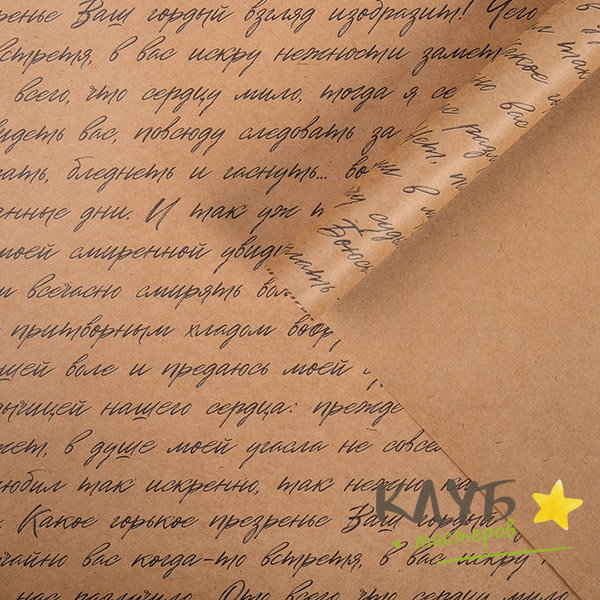 зренье Ваш гордый взгляд изобразит! Чего
встретя, в вас искру нежности замет
всего, что сердцу мило, тогда я се
видеть вас, повсюду следовать за
бледнеть и гаснуть... во
дни. И так уж п
моей смиренной увиди
и всечасно смирять вол
притворным хладом воор
вашей воле и предаюсь моей
нашего сердца: прежде
жет, в душе моей угасла не совсе
любил так искренно, так нежно, ка
Какое горькое презренье Ваш гордый
чайно вас когда-то встретя, в вас искру
нас разлучило. Ото всего, что сердцу мило
Боюсь
КЛУБ
мастеров